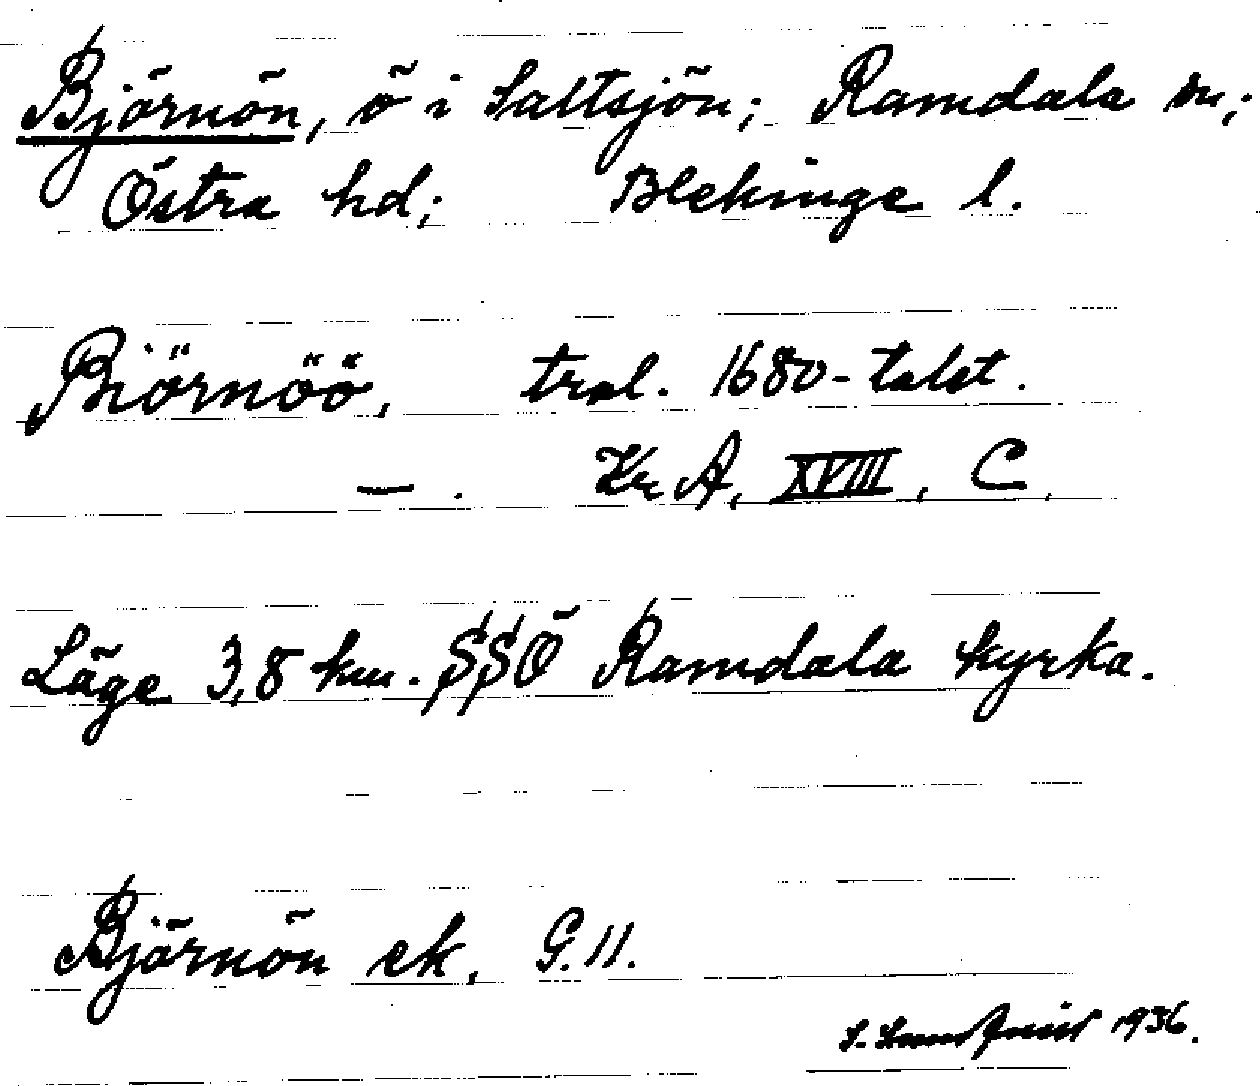 Björnön, ö i Saltsjön; Ramdala sn;
Östra hd; Blekinge l.
Biörnöö, trol. 1680-talet.
—. Kr A, XVIII, C.
Läge 3,8 km. SSÖ Ramdala kyrka.
Björnön ek. G.11.
S. 1936.